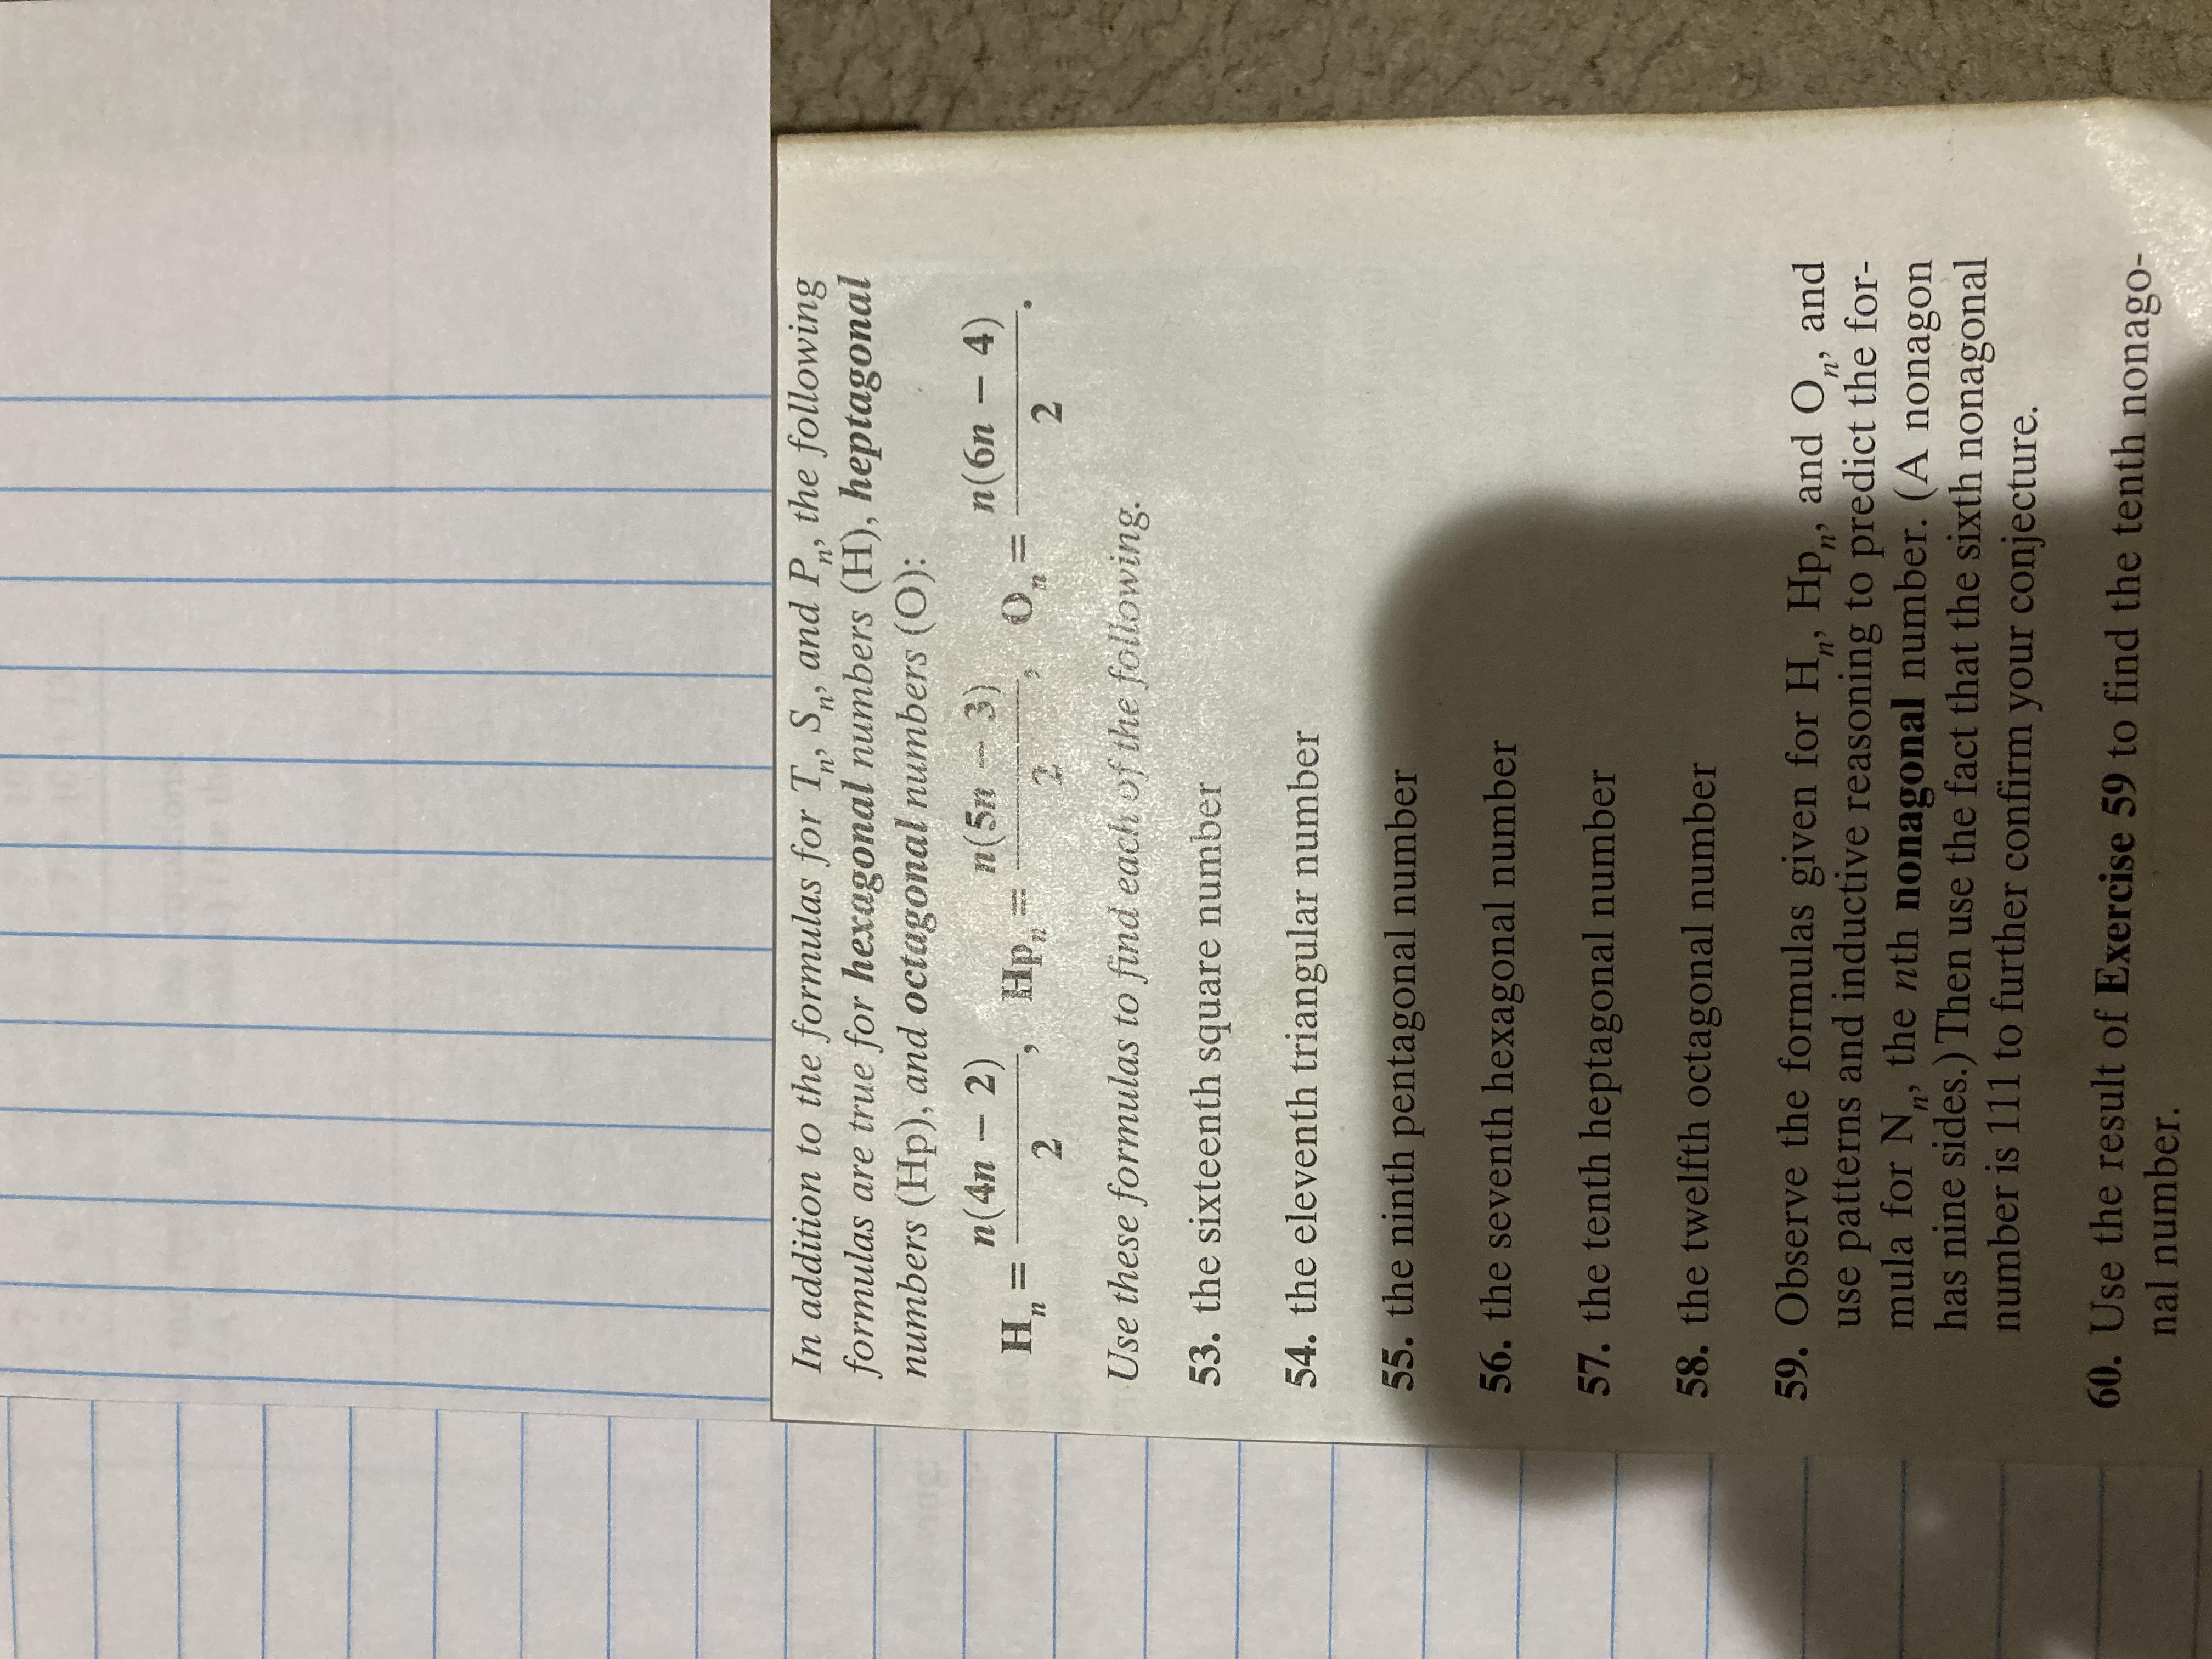 In addition to the formulas for Tₙ, Sₙ, and Pₙ, the following
formulas are true for hexagonal numbers (H), heptagonal
numbers (Hp), and octagonal numbers (O):
Hₙ = n(4n − 2)/2, Hpₙ = n(5n − 3)/2, Oₙ = n(6n − 4)/2.
Use these formulas to find each of the following.
53. the sixteenth square number
54. the eleventh triangular number
55. the ninth pentagonal number
56. the seventh hexagonal number
57. the tenth heptagonal number
58. the twelfth octagonal number
59. Observe the formulas given for Hₙ, Hpₙ, and Oₙ, and
use patterns and inductive reasoning to predict the for-
mula for Nₙ, the nth nonagonal number. (A nonagon
has nine sides.) Then use the fact that the sixth nonagonal
number is 111 to further confirm your conjecture.
60. Use the result of Exercise 59 to find the tenth nonago-
nal number.